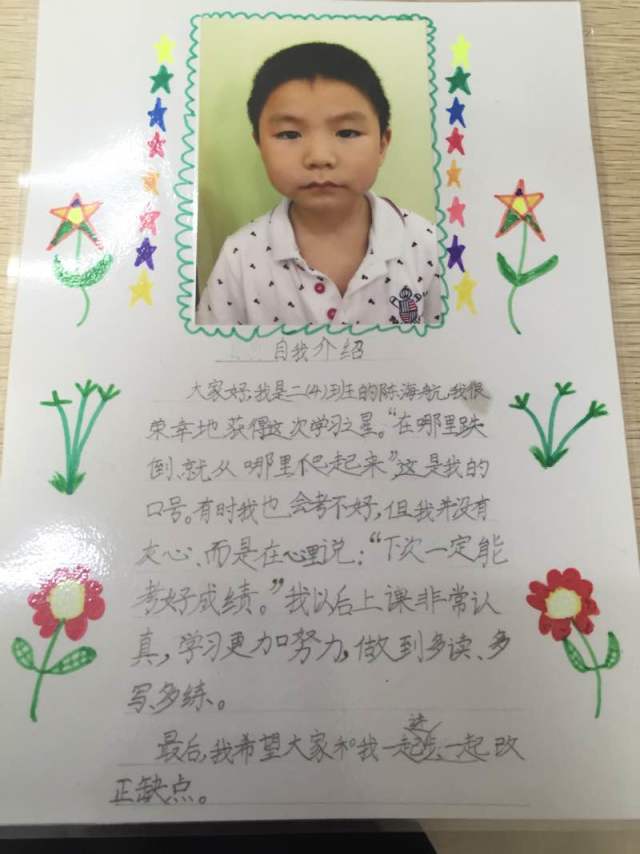 自我介绍
大家好,我是二(4)班的陈海航,我很
荣幸地获得这次学习之星。“在哪里跌
倒、就从哪里爬起来”这是我的
口号。有时我也会考不好,但我并没有
灰心、而是在心里说:“下次一定能
考好成绩。”我以后上课非常认
真,学习更加努力,做到多读、多
写、多练。
最后,我希望大家和我一起进步、一起改
正缺点。